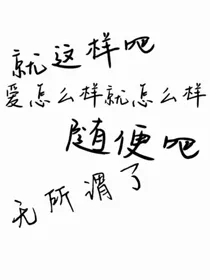 就这样吧
爱怎么样就怎么样
随便吧
无所谓了